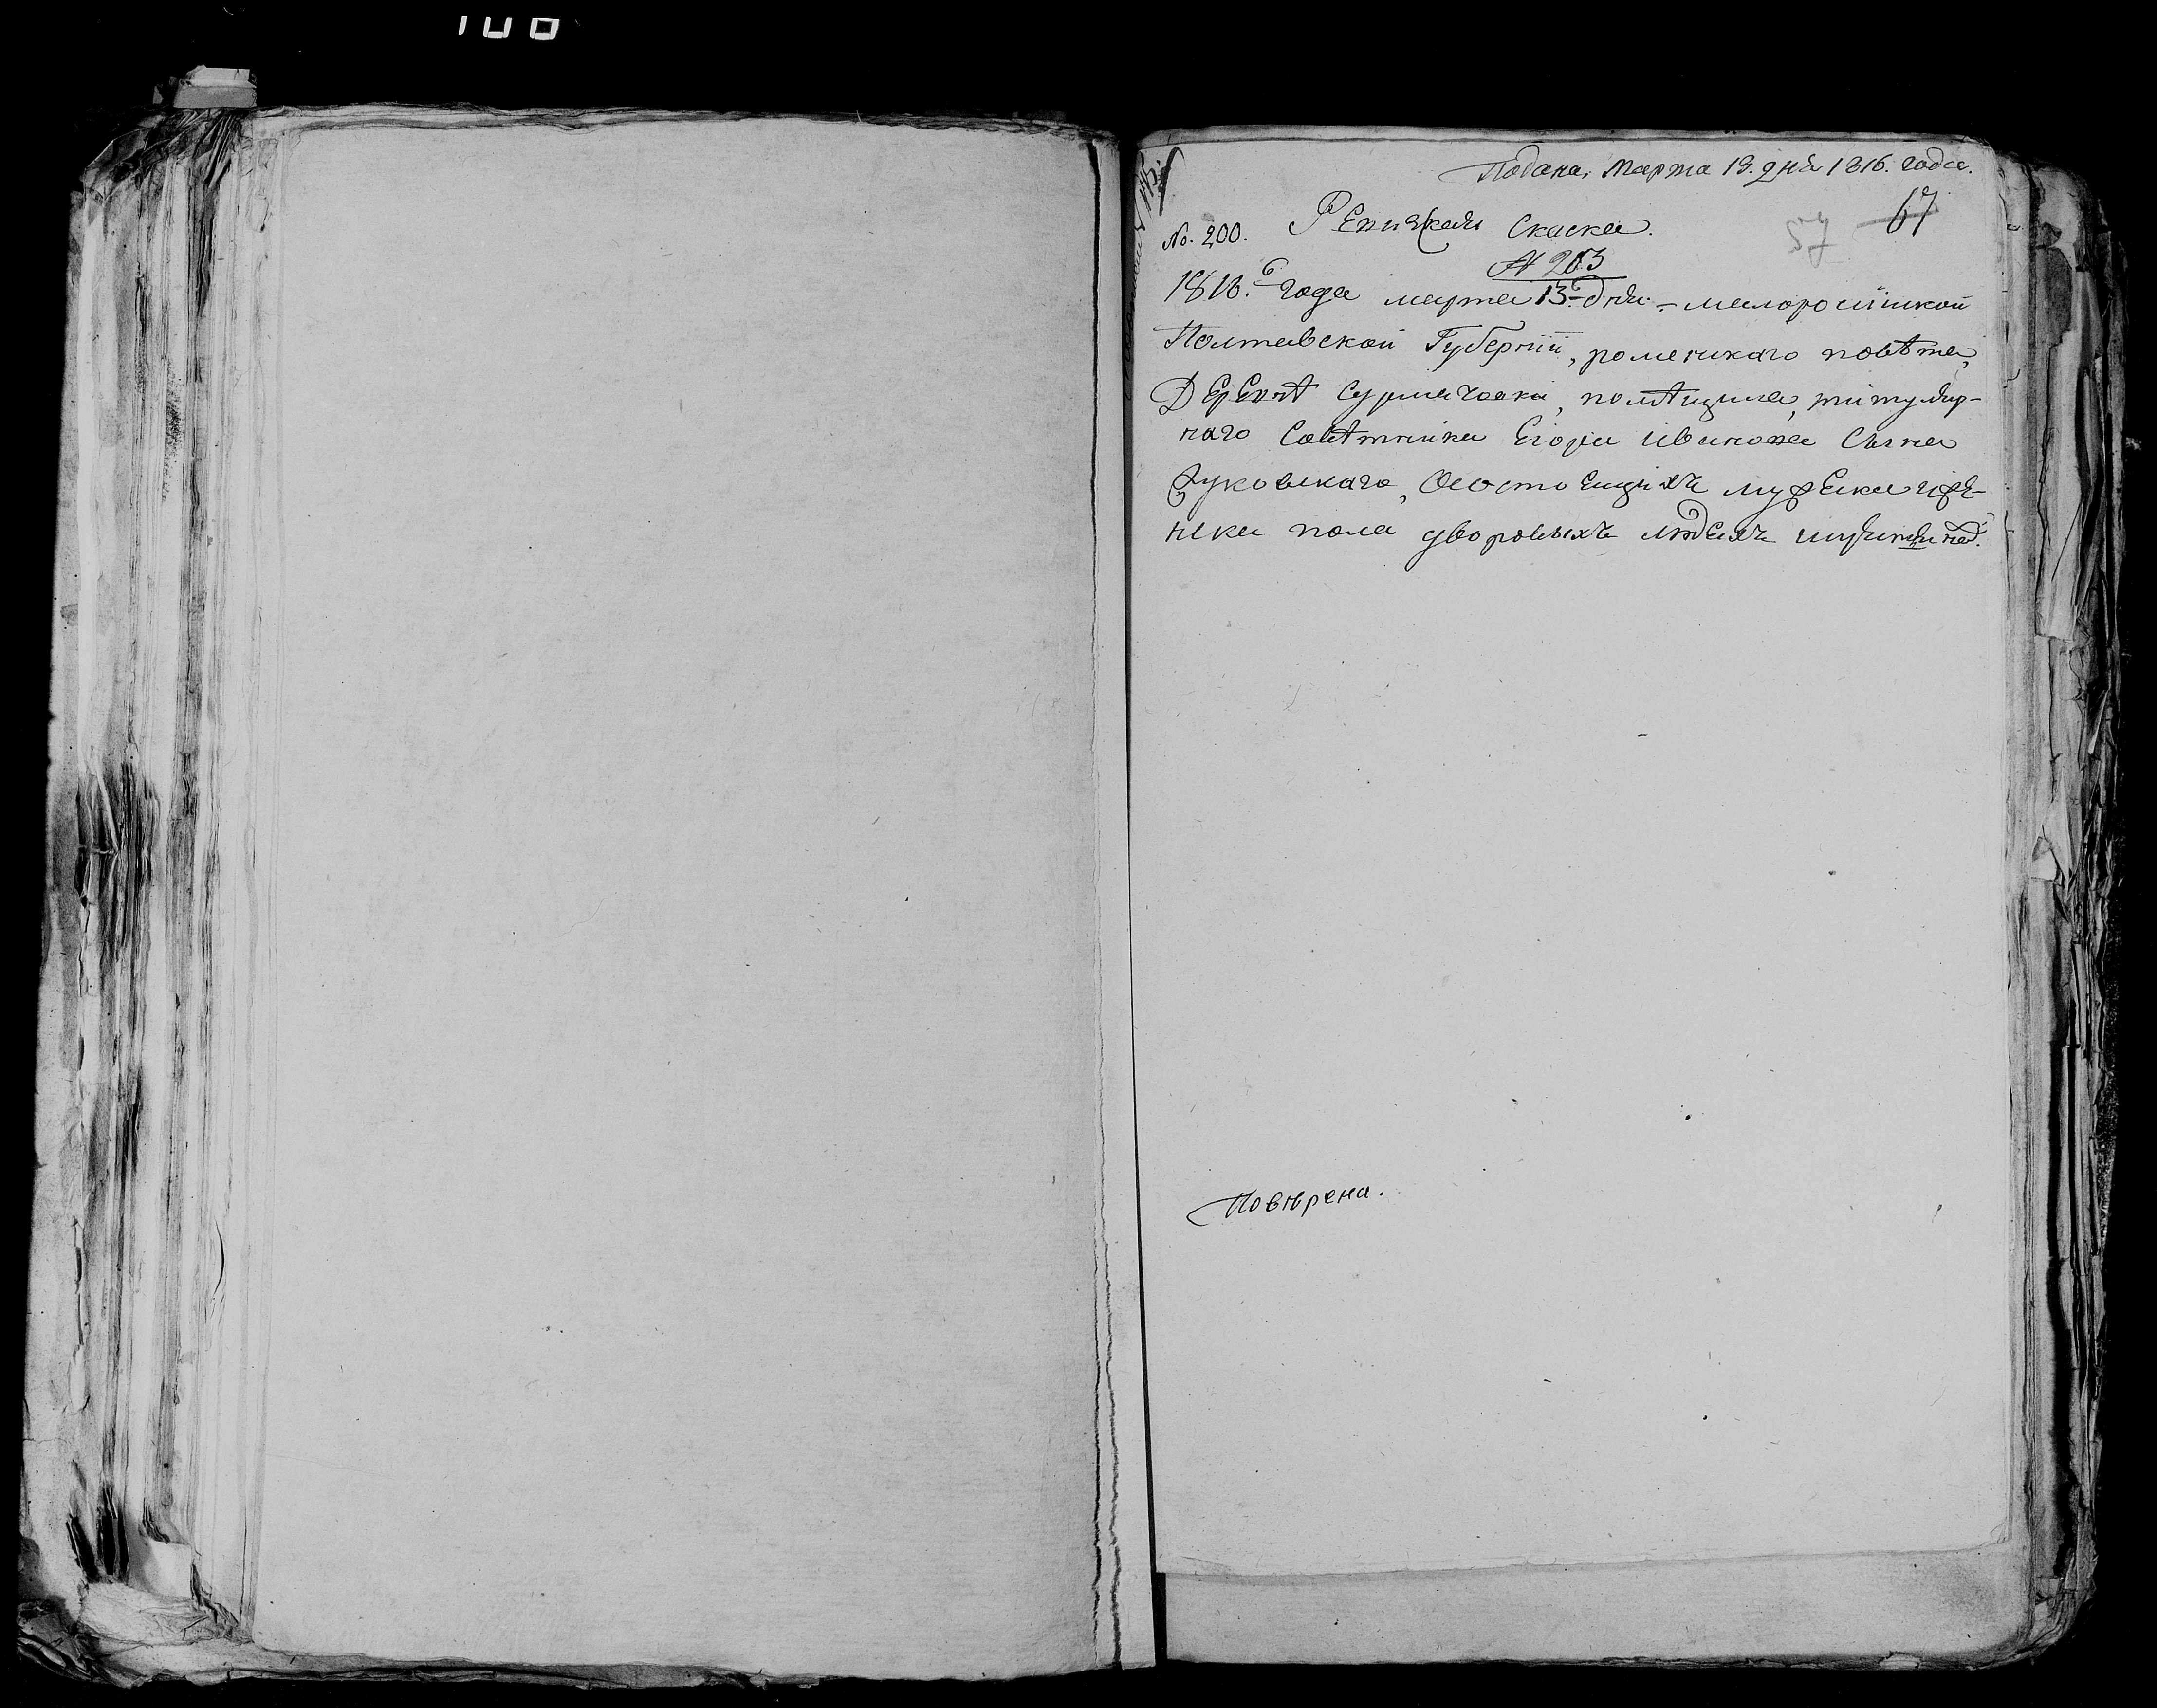 100
Подана, Марта 13. дня 1816. года.
67
57
No. 200. Ревизская Скаска.
№ 203
1816. года марта 13. дня малоросийской
Полтавской Губернїи, роменскаго повѣта,
Деревнѣ Сурмачовки, помѣщика, титуляр-
наго Совѣтника Егора Иванова Сына
о состоящихъ мужеска и жен-
ска пола дворовыхъ людехъ
Повѣрена.